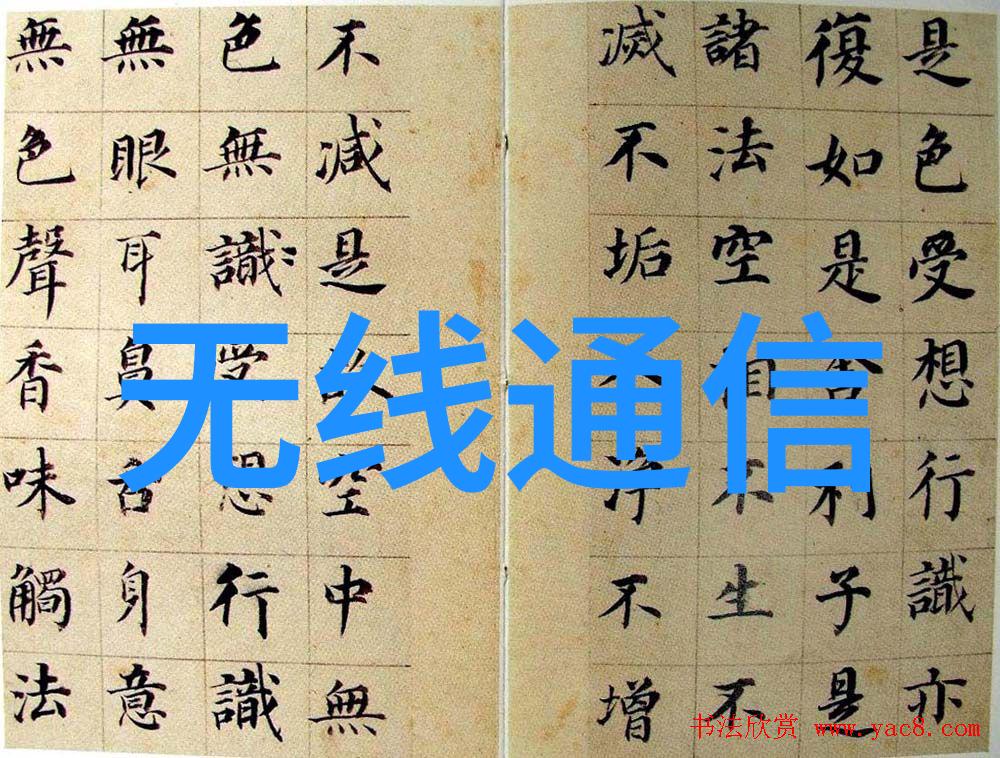 是色受想行識亦
復如是舍利子是
諸法空相不生不
滅不垢不淨不增
不減是故空中無
色無識受想行識
無眼耳鼻舌身意
無色聲香味觸法
无线通信
书法欣赏 www.yac8.com